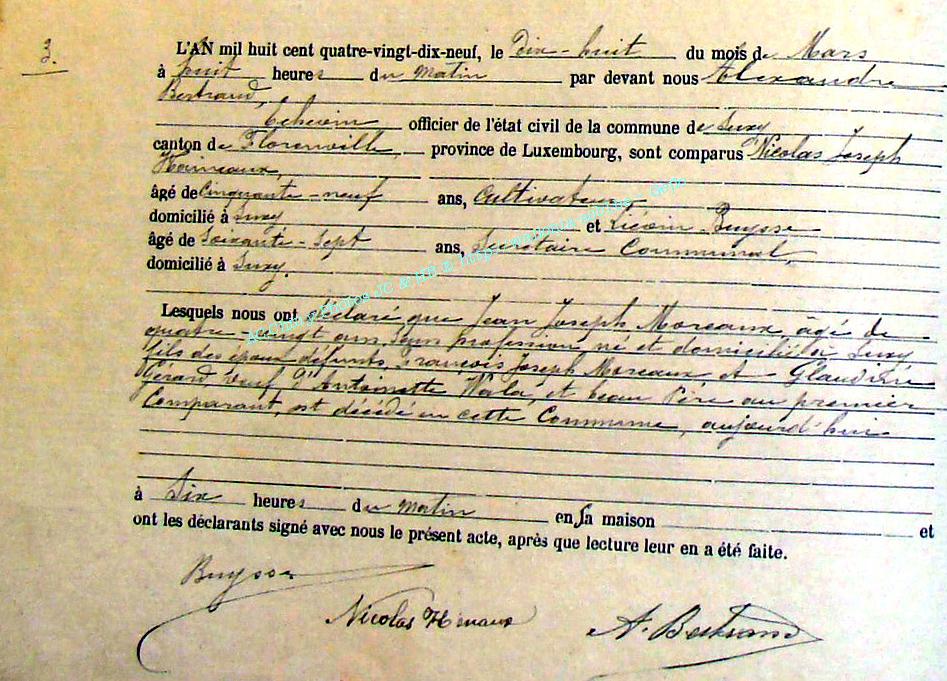 3.
L'AN mil huit cent quatre-vingt-dix-neuf, le Dix-huit du mois de Mars
à huit heures du Matin par devant nous Alexandre
Bertrand,
Echevin officier de l'état civil de la commune de Suxy
canton de Florenville, province de Luxembourg, sont comparus Nicolas Joseph
Hainaux,
âgé de Cinquante-neuf ans, Cultivateur,
domicilié à Suxy et Liévin Buysse
âgé de Soixante-Sept ans, Secrétaire Communal,
domicilié à Suxy.
Lesquels nous ont déclaré que Jean Joseph Moreaux, âgé de
quatre-vingt ans, Sans profession, né et domicilié à Suxy
fils des époux défunts, François Joseph Moreaux et
Gérard, veuf d'Antoinette et beau Père au premier
Comparant, est décédé en cette Commune, aujourd'hui
à Six heures du Matin en Sa maison et
ont les déclarants signé avec nous le présent acte, après que lecture leur en a été faite.
Buysse
Nicolas Henaux
A. Bertrand